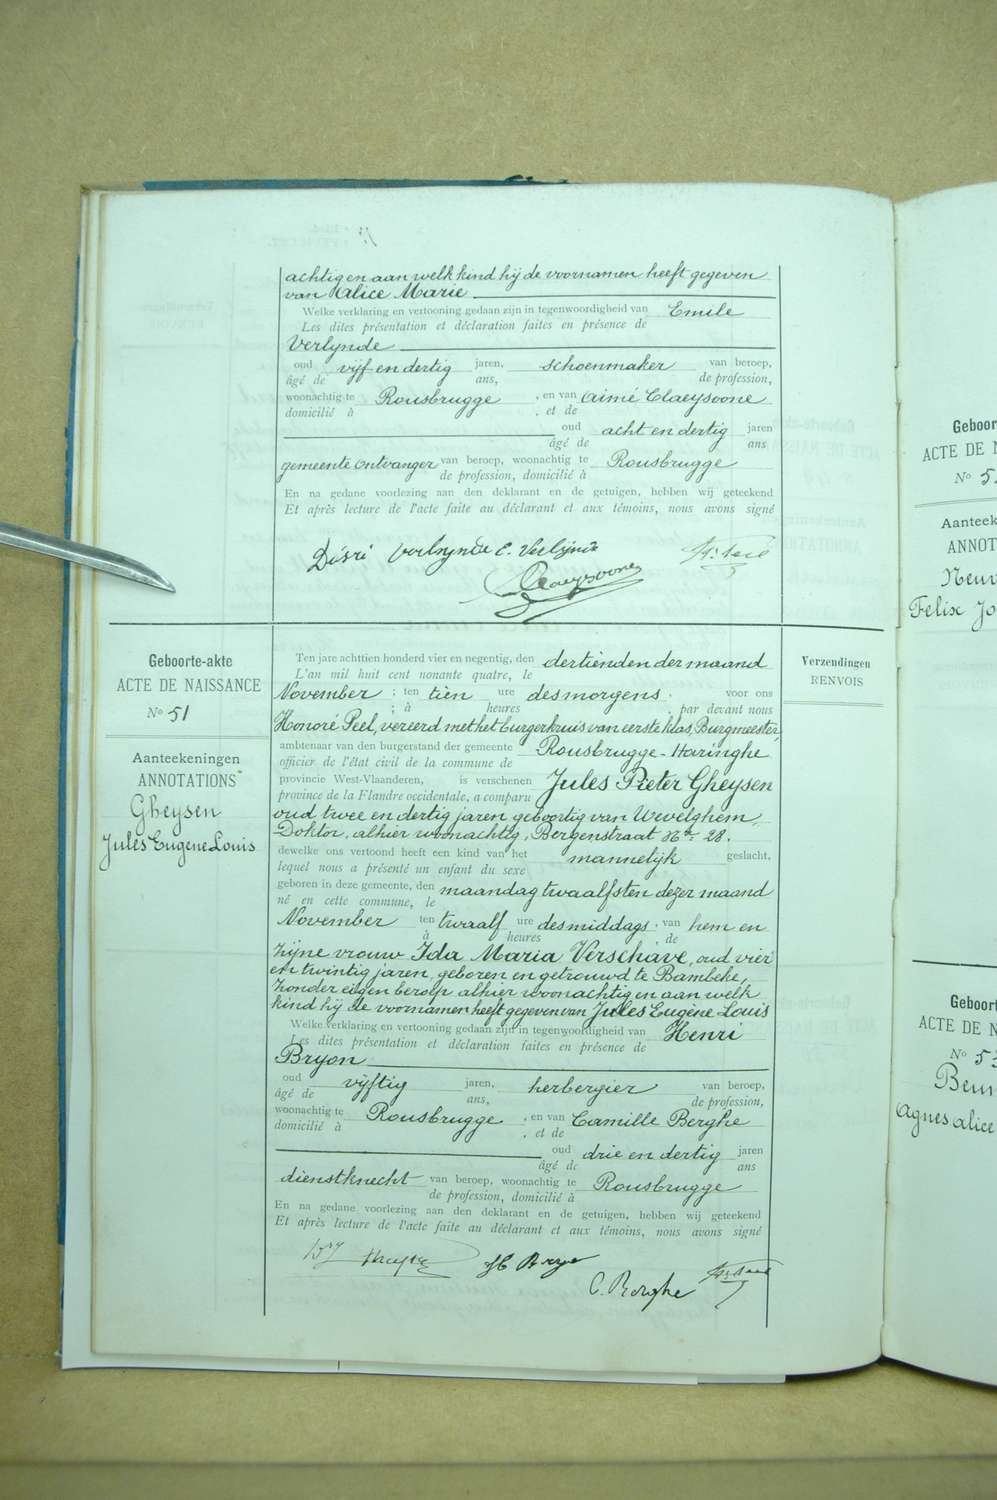 achtig en aan welk kind hij de voornamen heeft gegeven
van Alice Marie
Welke verklaring en vertooning gedaan zijn in tegenwoordigheid van Emile
Les dites présentation et déclaration faites en présence de
Verlynde
oud vijf en dertig jaren, schoenmaker van beroep,
âgé de ans, de profession,
woonachtig te Rousbrugge , en van Aimé Claeysoone
domicilié à , et de
oud acht en dertig jaren
âgé de ans
gemeente ontvanger van beroep, woonachtig te Rousbrugge
de profession, domicilié à
En na gedane voorlezing aan den deklarant en de getuigen, hebben wij geteekend
Et après lecture de l'acte faite au déclarant et aux témoins, nous avons signé
Désri Verlynde E. Verlynde
Claeysoone
Geboorte-akte
ACTE DE NAISSANCE
No 51
Aanteekeningen
ANNOTATIONS
Gheysen
Jules Eugene Louis
Ten jare achttien honderd vier en negentig, den dertienden der maand
L'an mil huit cent nonante quatre, le
November ; ten tien ure des morgens voor ons
; à heures , par devant nous
Honoré Peel, vereerd met het burgerkruis van eerste klas, Burgmeester,
ambtenaar van den burgerstand der gemeente Rousbrugge-Haringhe
officier de l'état civil de la commune de
provincie West-Vlaanderen, is verschenen Jules Pieter Gheysen
province de la Flandre occidentale, a comparu
oud twee en dertig jaren geboortig van Wevelghem,
Doktor, alhier woonachtig, Bergenstraat No 28.
dewelke ons vertoond heeft een kind van het mannelijk geslacht,
lequel nous a présenté un enfant du sexe
geboren in deze gemeente, den maandag twaalfsten dezer maand
né en cette commune, le
November ten twaalf ure des middags , van hem en
à heures , de
zijne vrouw Ida Maria Verschave, oud vier
en twintig jaren, geboren en getrouwd te Bambeke,
zonder eigen beroep alhier woonachtig en aan welk
kind hij de voornamen heeft gegeven van Jules Eugene Louis
Welke verklaring en vertooning gedaan zijn in tegenwoordigheid van Henri
Les dites présentation et déclaration faites en présence de
Bryon
oud vijftig jaren, herbergier van beroep,
âgé de ans, de profession,
woonachtig te Rousbrugge , en van Camille Berghe
domicilié à , et de
oud drie en dertig jaren
âgé de ans
dienstknecht van beroep, woonachtig te Rousbrugge
de profession, domicilié à
En na gedane voorlezing aan den deklarant en de getuigen, hebben wij geteekend
Et après lecture de l'acte faite au déclarant et aux témoins, nous avons signé
C. Berghe
Verzendingen
RENVOIS
Geboor
ACTE DE N
No 5
Aanteek
ANNOT
Felix Jo
Geboort
ACTE DE N
No 53
Agnes Alice